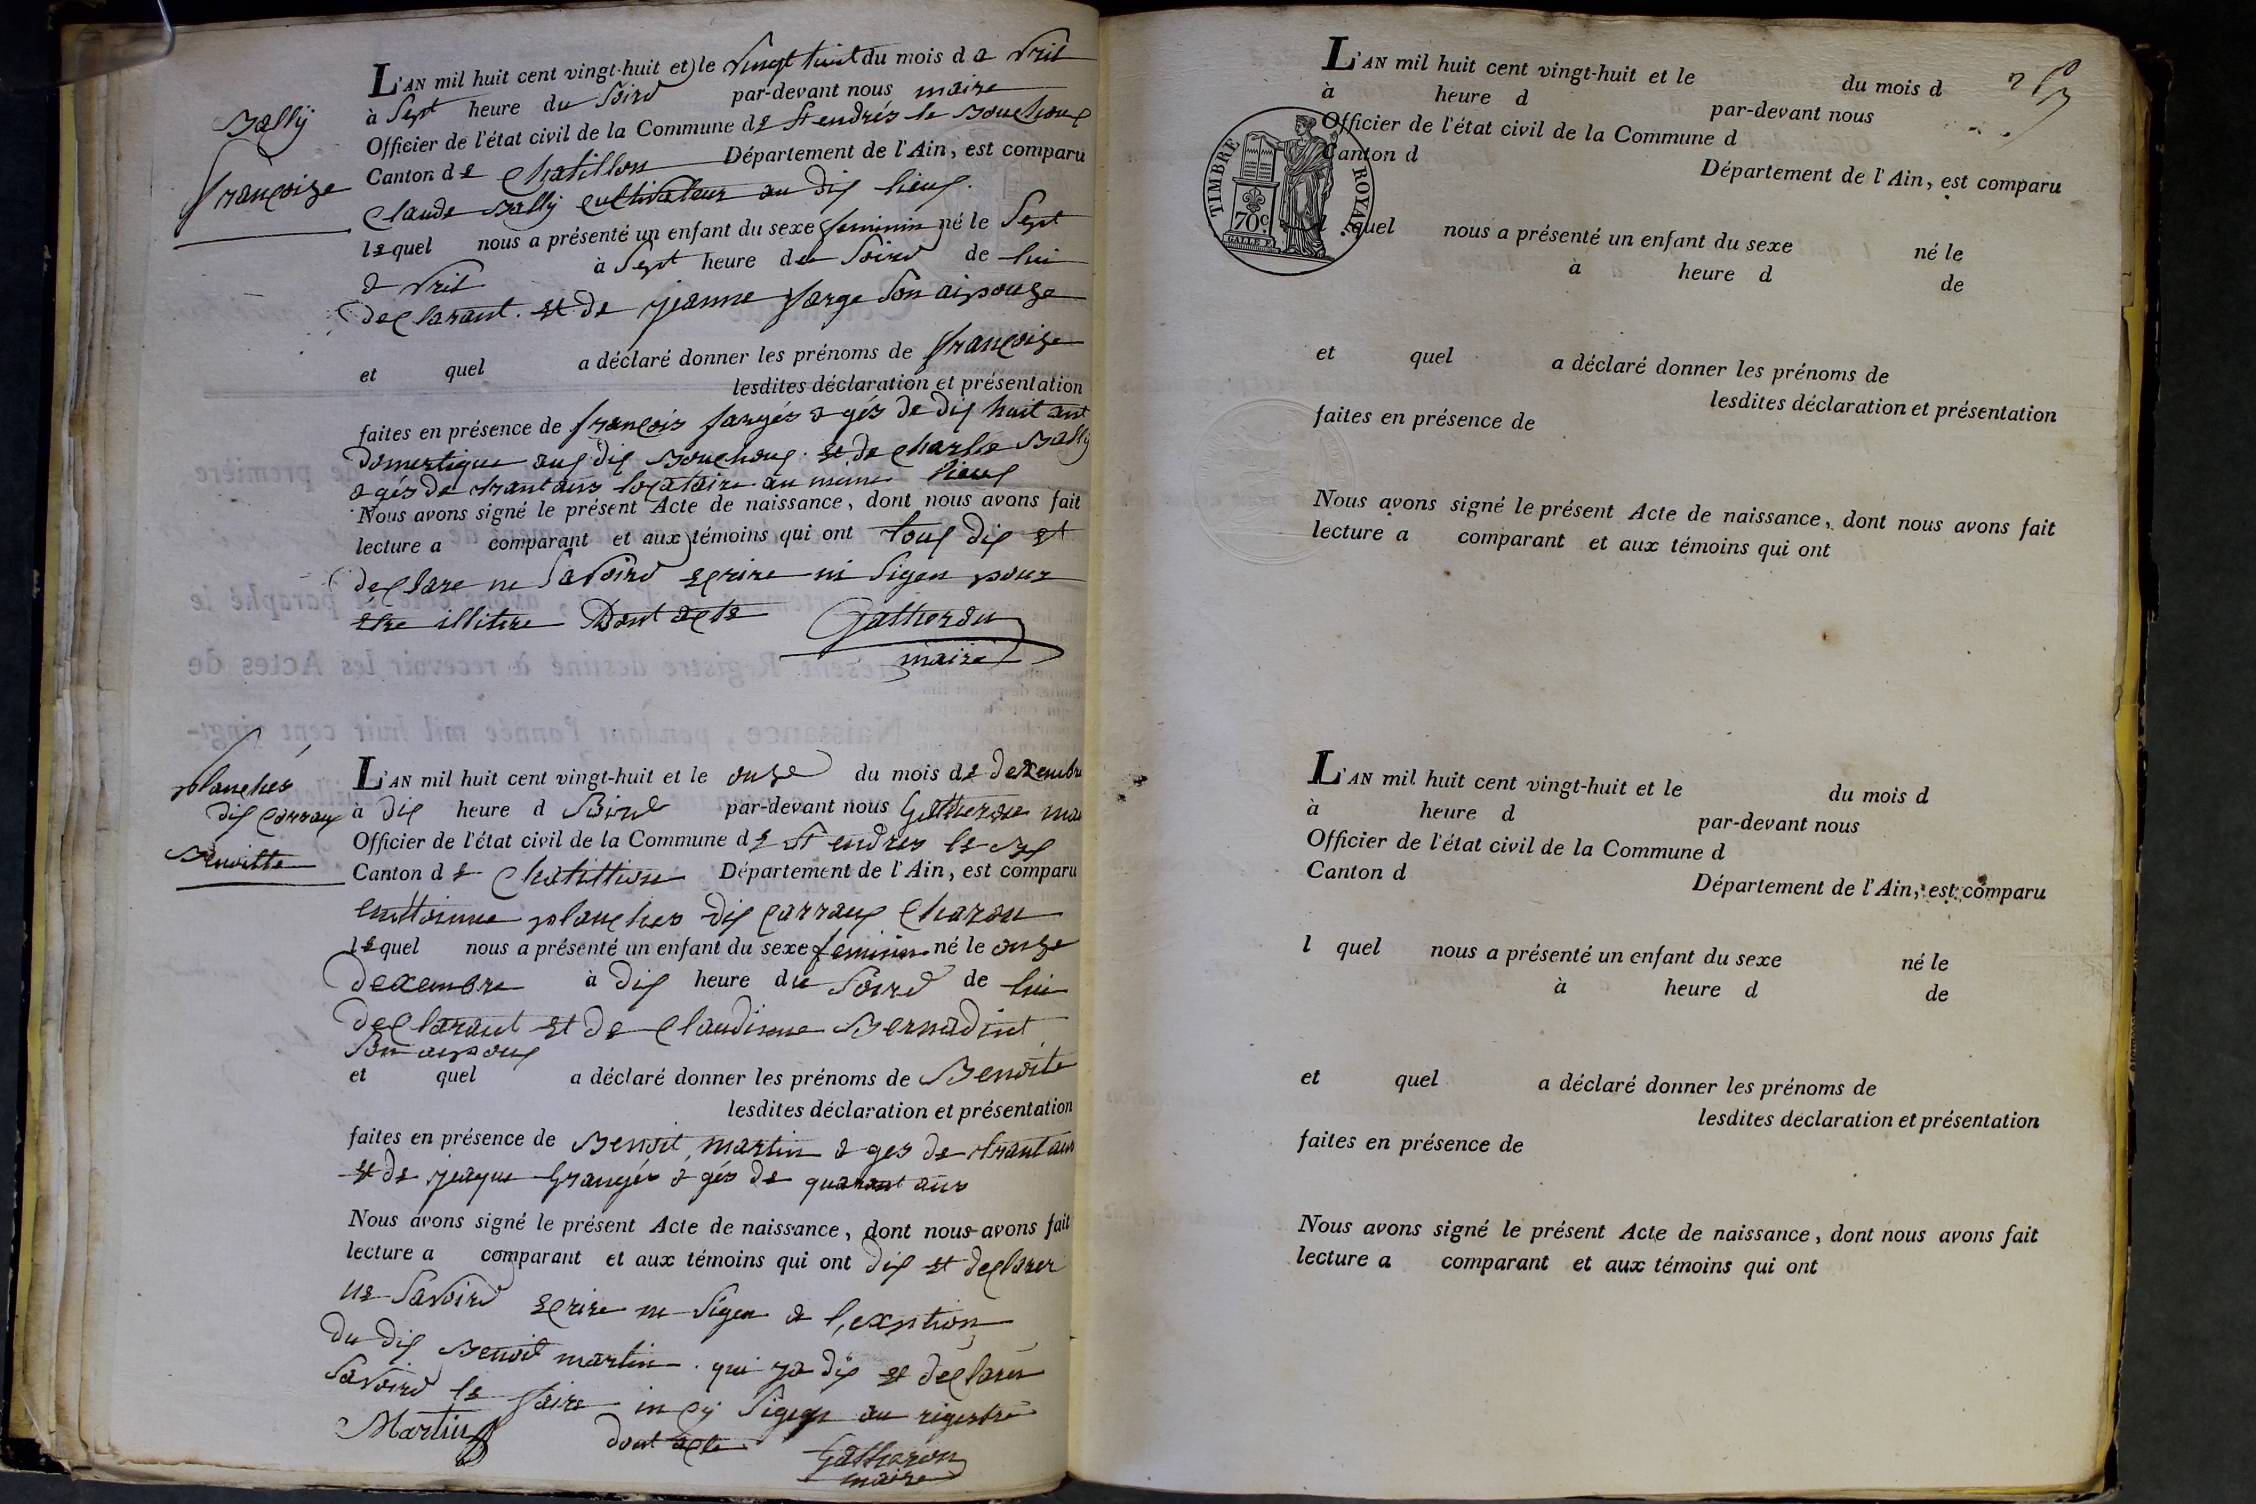 Bally
françoise
L'AN mil huit cent vingt-huit et le vingt huit du mois d avril
à Sept heure du Soird par-devant nous maire
Officier de l'état civil de la Commune de St endrés le Bouchoux
Canton de Chatillon Département de l'Ain, est comparu
Claude Bally Cultivateur au dis lieux.
lequel nous a présenté un enfant du sexe feminin né le Sept
avril à Sept heure du Soird de lui
declarant. et de jeanne farge Son aipouse
et quel a déclaré donner les prénoms de françoise
lesdites déclaration et présentation
faites en présence de françois farges agés de dix huit ant
domestique aux dis Bouchoux. et de Charle Bally
agés de trant ans locataire au meme lieux
Nous avons signé le présent Acte de naissance, dont nous avons fait
lecture a comparant et aux témoins qui ont tous dis et
declare ne Savoird ecrire ni Signer pour
etre illitere Dont acte Gatheron
maire
planches
dis Carraux
Benoitte
L'AN mil huit cent vingt-huit et le onze du mois de decembre
à dix heure d Soird par-devant nous Gatheron mai
Officier de l'état civil de la Commune de St endres le Bx
Canton de Chatillion Département de l'Ain, est comparu
enttoinne planches dis Carraux Charon
lequel nous a présenté un enfant du sexe feminin né le onze
decembre à dix heure du Soird de lui
declarant et de Claudinne Bernadint
Son aipoux
et quel a déclaré donner les prénoms de Benoite
lesdites déclaration et présentation
faites en présence de Benoit martin ages de trant ans
et de jaque Granges agés de quarant ans
Nous avons signé le présent Acte de naissance, dont nous avons fait
lecture a comparant et aux témoins qui ont dis et declarer
ne Savoird ecrire ne Signer a l,exption
du dis Benoit martin. qui ya dis et declarer
Savoird le faire in Cy Signer au rigestre
Martin dont acte Gatheron
maire
L'AN mil huit cent vingt-huit et le du mois d
à heure d par-devant nous
Officier de l'état civil de la Commune d
Canton d Département de l'Ain, est comparu
TIMBRE ROYAL
70c
l quel nous a présenté un enfant du sexe né le
à heure d de
et quel a déclaré donner les prénoms de
lesdites déclaration et présentation
faites en présence de
Nous avons signé le présent Acte de naissance, dont nous avons fait
lecture a comparant et aux témoins qui ont
L'AN mil huit cent vingt-huit et le du mois d
à heure d par-devant nous
Officier de l'état civil de la Commune d
Canton d Département de l'Ain, est comparu
l quel nous a présenté un enfant du sexe né le
à heure d de
et quel a déclaré donner les prénoms de
lesdites déclaration et présentation
faites en présence de
Nous avons signé le présent Acte de naissance, dont nous avons fait
lecture a comparant et aux témoins qui ont